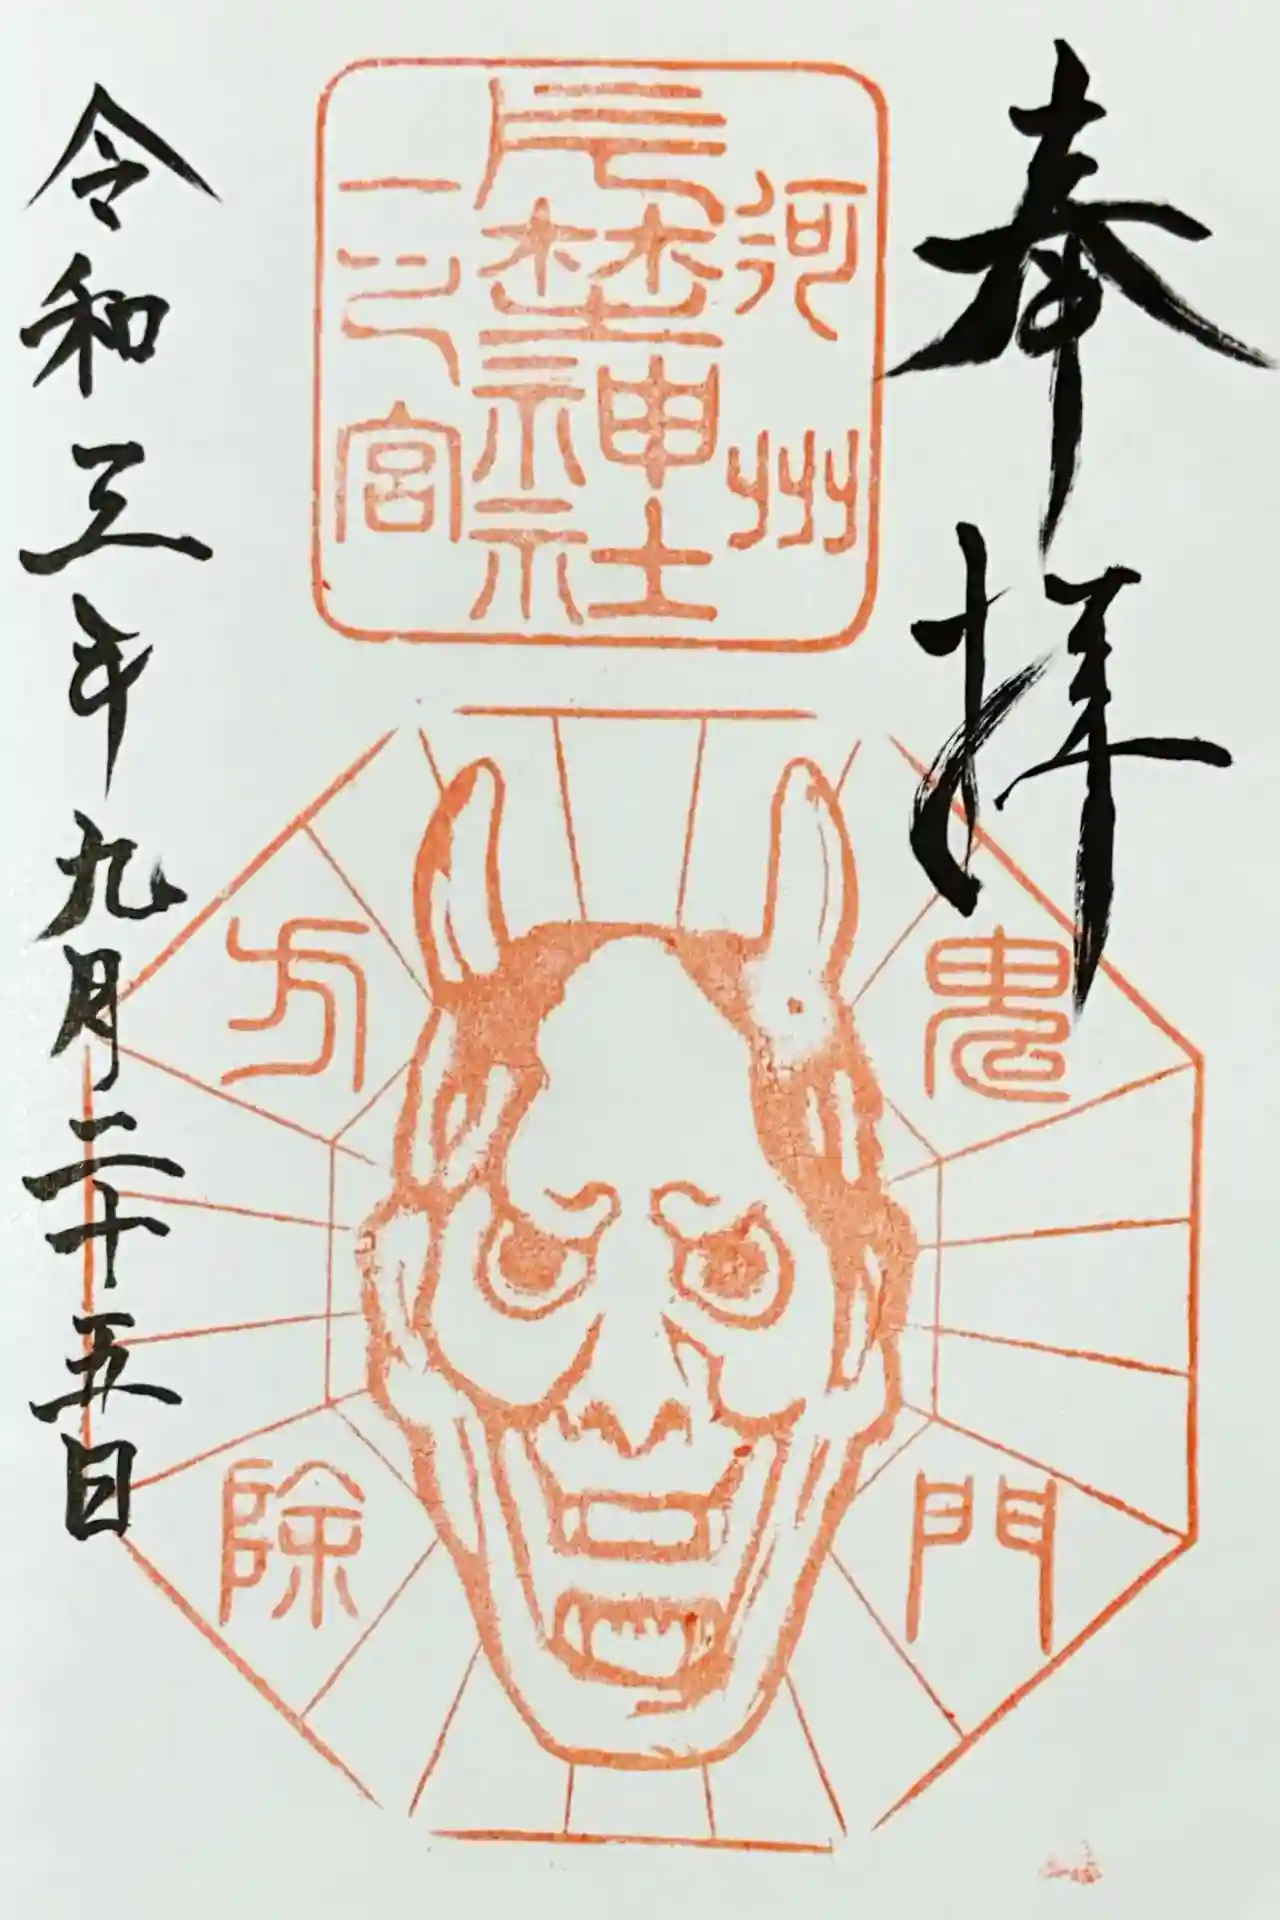 奉拝
河州
片埜神社
一之宮
鬼門
方除
令和三年九月二十五日